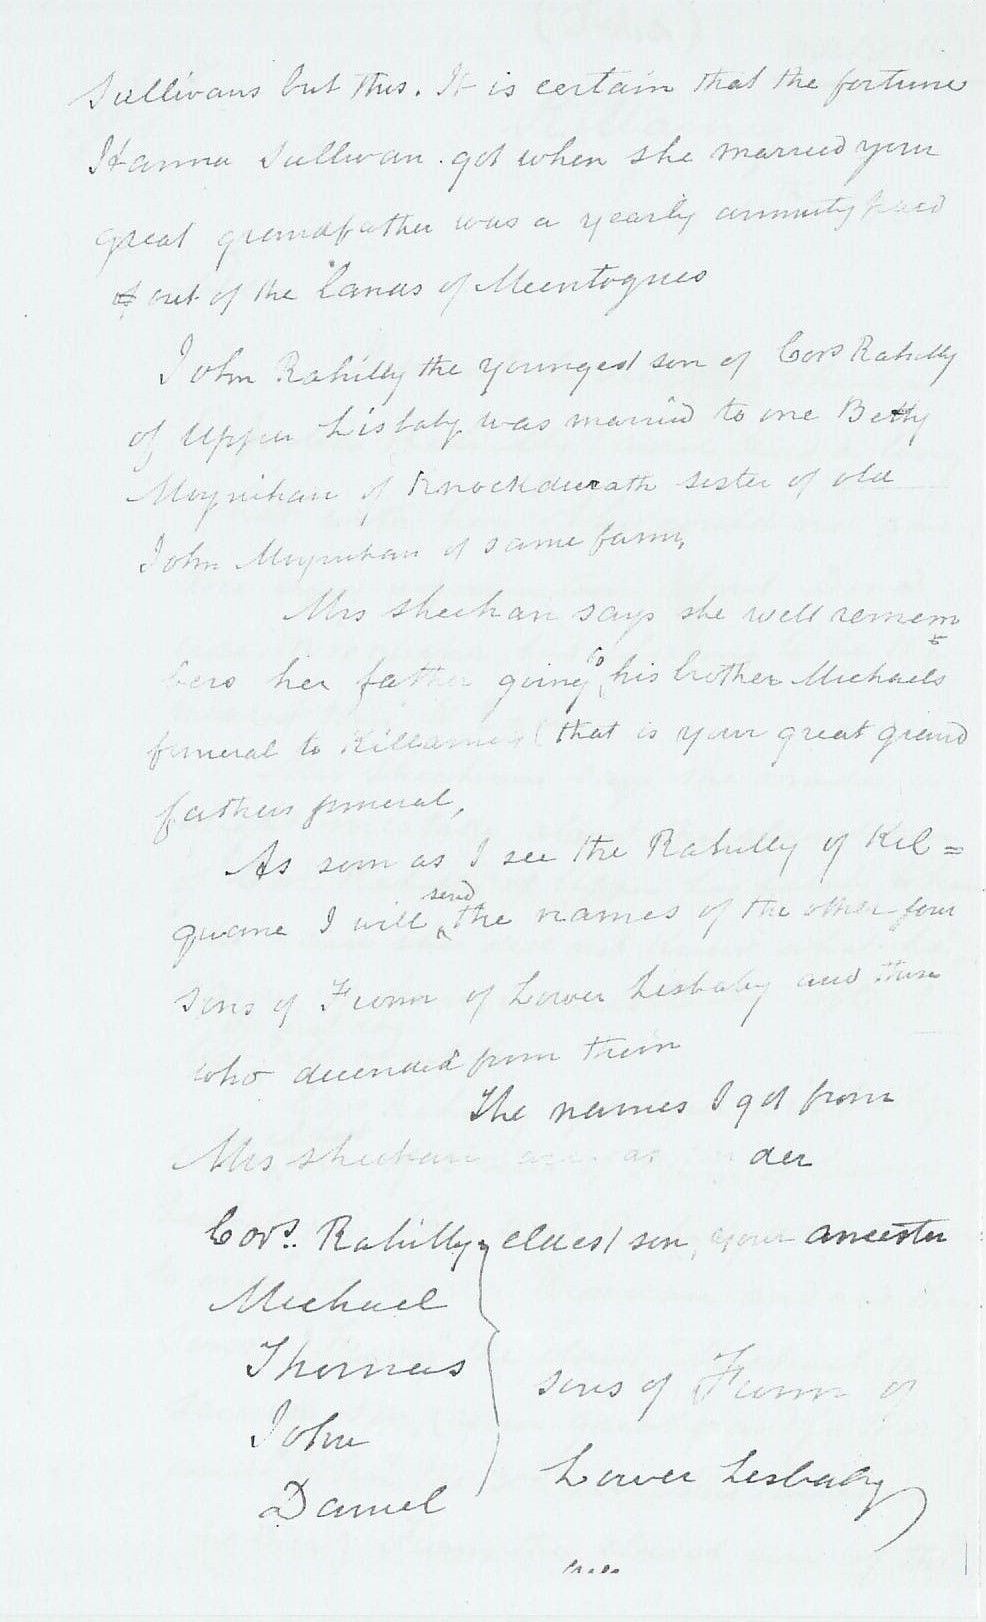 Sullivans but this. It is certain that the fortune
Hanna Sullivan got when she married your
great grandfather was a yearly annuity paid
out of the lands of Meentogues
John Rahilly the youngest son of Cors Rahilly
of Upper Lisbaby was married to one Betty
Moynihan of Knockdurath sister of old
John Moynihan of same farm,
Mrs Sheehan says she well remem
bers her father going to his brother Michaels
funeral to Killarney (that is your great grand
fathers funeral,
As soon as I see the Rahilly of Kil=
quane I will send the names of the other four
sons of Finnn of Lower Lisbaby and those
who decended from them
The names I got from
Mrs Sheehan are as under
Cors. Rahilly eldest son, your ancestor
Michael
Thomas
John
Daniel
sons of Finnn of
Lower Lisbaby